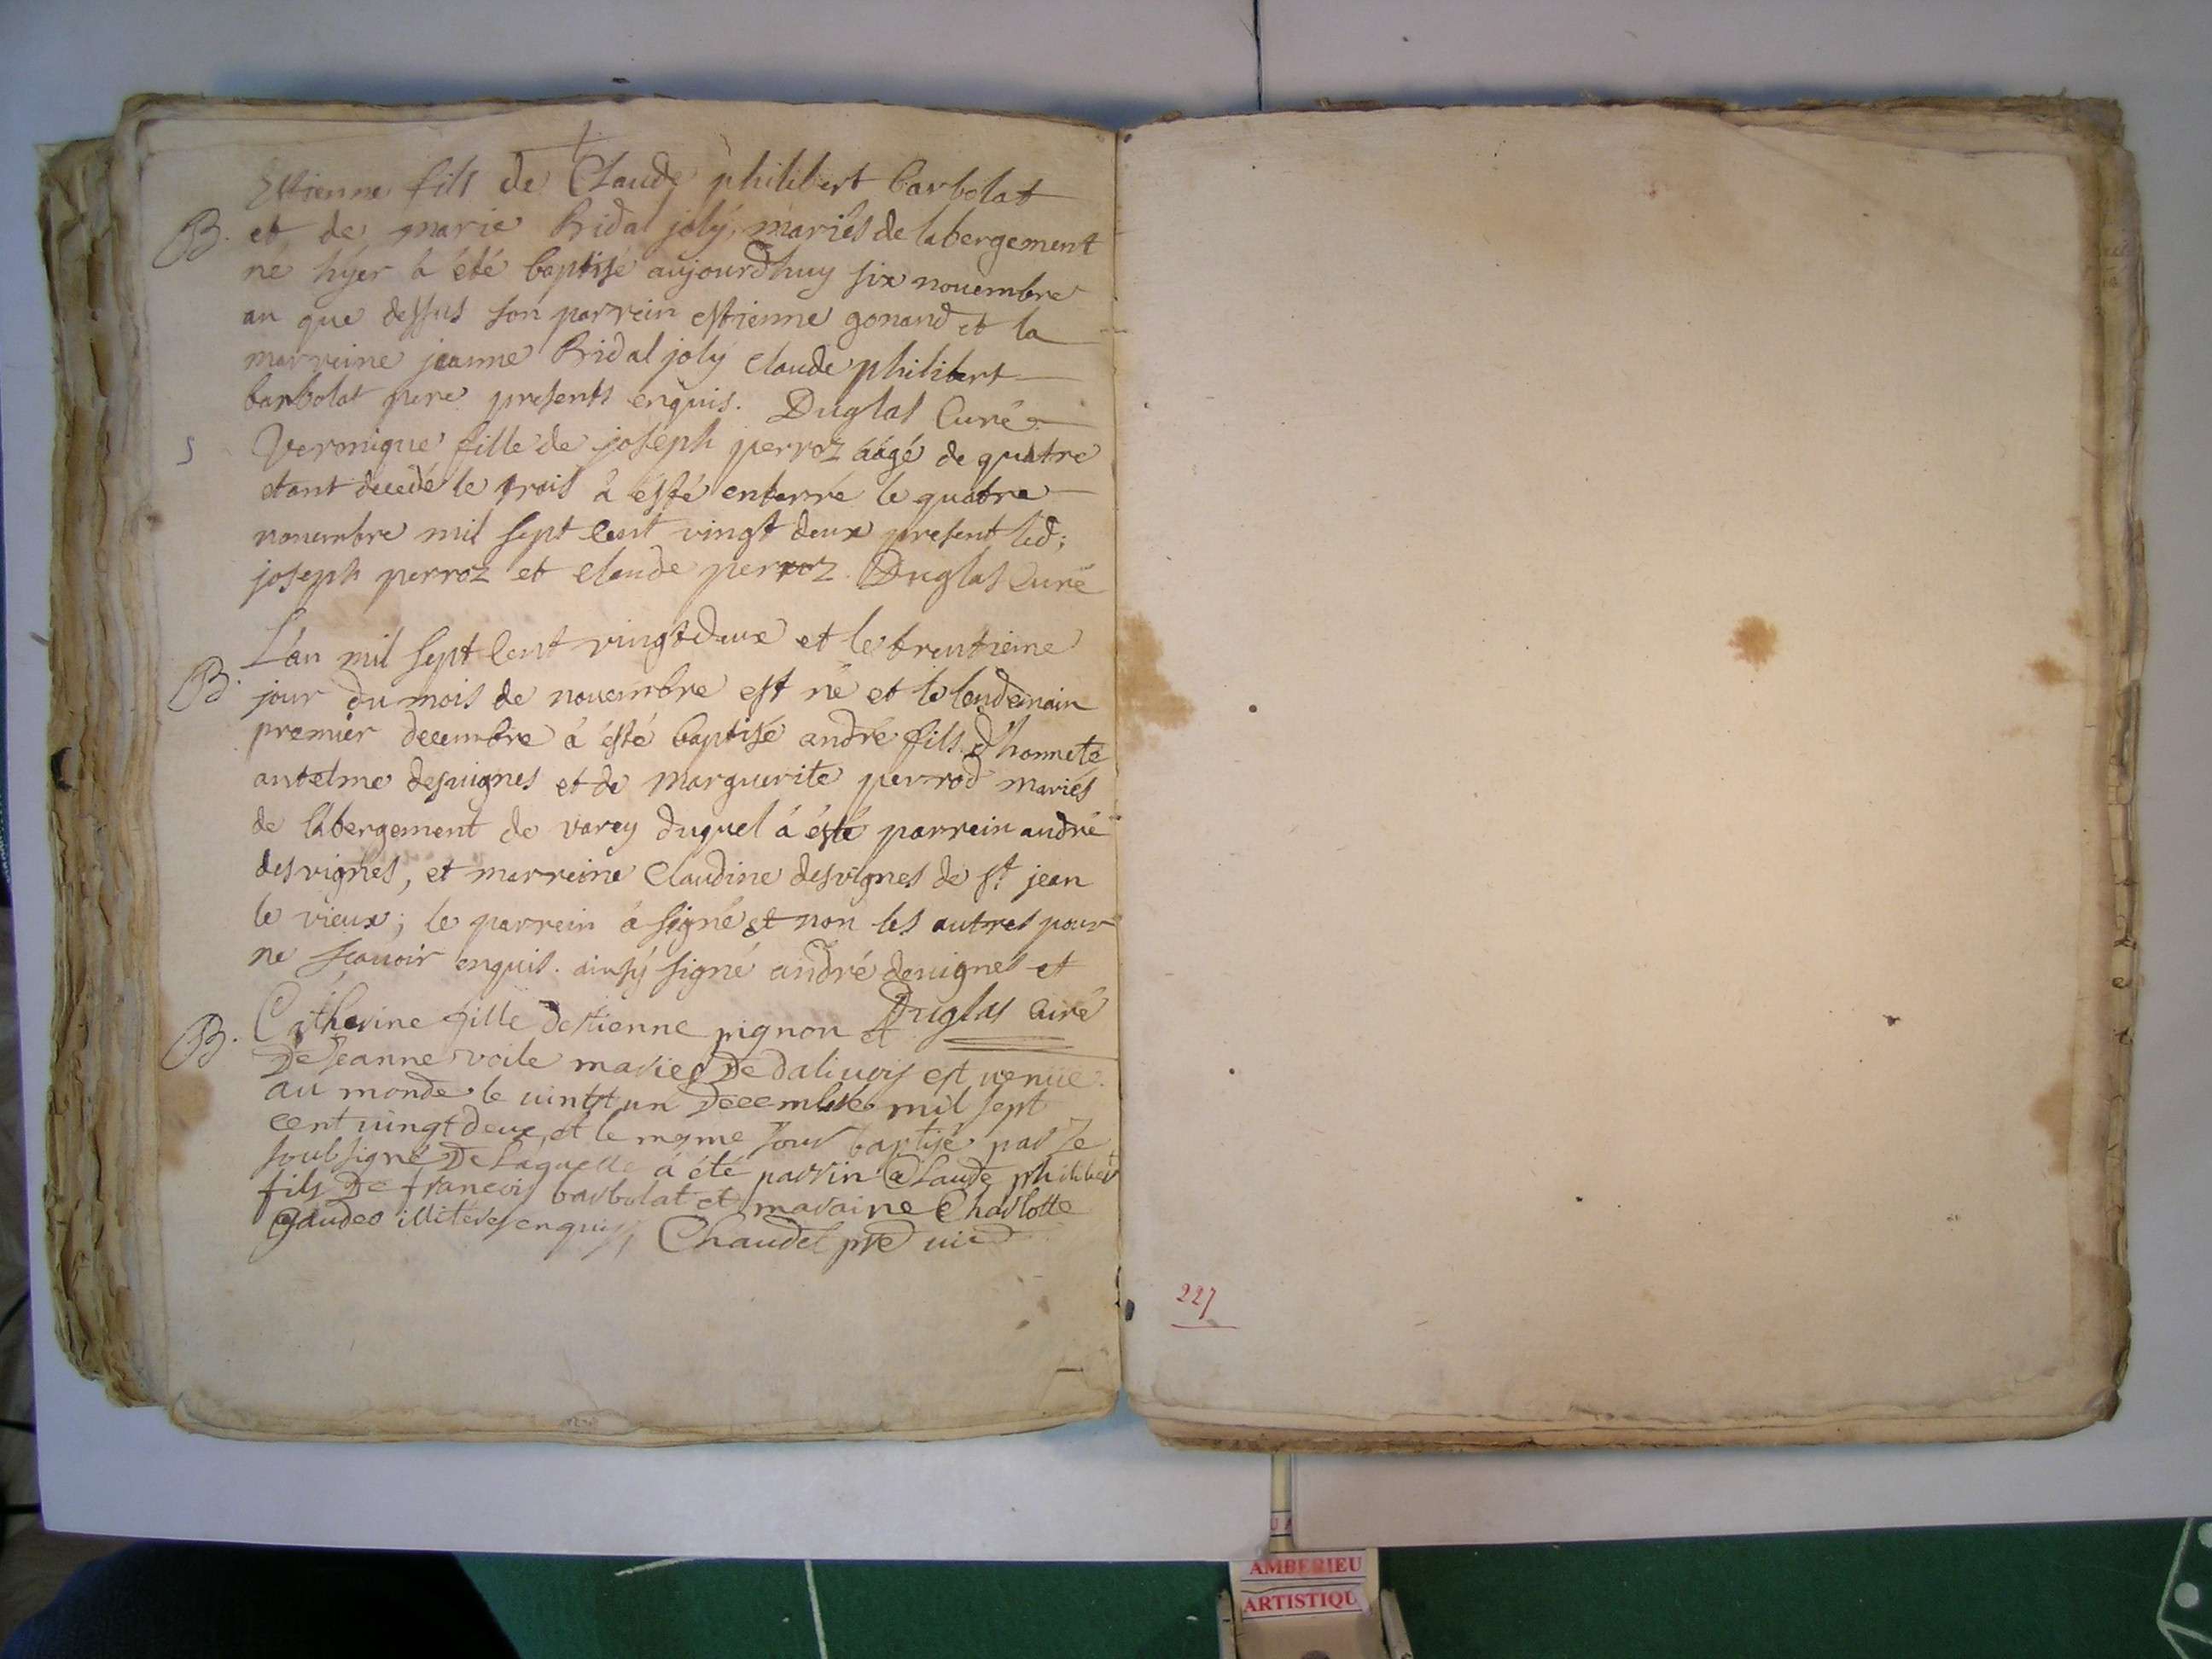 Estienne fils de Claude philibert barbolat
B. et de marie Bridal joly, mariés de labergement
né hyer à été baptisé aujourdhuy six nouembre
an que dessus son parrein estienne gonand et la
marreine jeanne Bridal joly Claude philibert
barbolat pere presents enquis. Duglas Curé
S Veronique fille de joseph perroz áagé de quatre
etant decedé le trois à ésté enterré le quatre
nouembre mil sept cent vingt deux present led;
joseph perroz et claude perroz. Duglas Curé
L'an mil sept cent vingt deux et le trentieme
B. jour du mois de nouembre est né et le lendemain
premier decembre à ésté baptisé andré fils d'honneté
antelme desuignes et de marguerite perrod mariés
de labergement de varey duquel à ésté parrein andré
desvignes, et marreine Claudine desvignes de st jean
le vieux; le parrein à signé et non les autres pour
ne scauoir enquis. ainsy signé andré deuignes et
Duglas Curé
B. Catherine fille destienne pignon et
De Jeanne voile maries De daliuoy est venüe
au monde le uintt un Decembre mil sept
cent uingt deux et le mesme jour baptisé par je
soubsigné De Laquelle à été parrin Claude philibert
fils De francois barbolat et maraine Charlotte
gaudeo illiteres enquis, Chaudet pre uic
227
AMBERIEU
ARTISTIQU